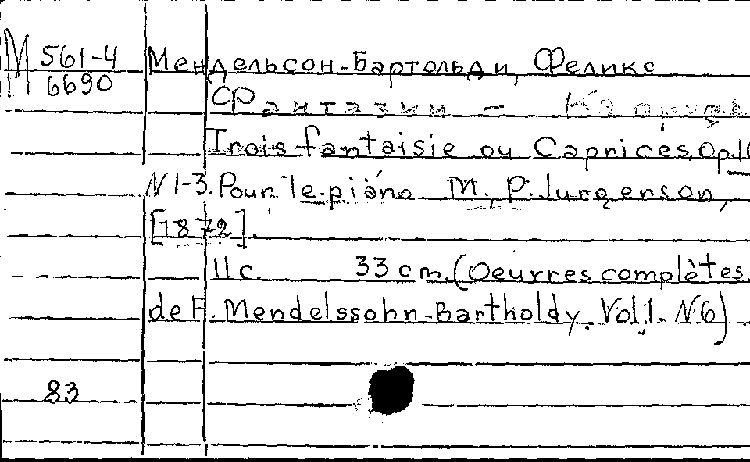 М 561-4 Мендельсон-Бартольди, Феликс
6690
Фантазии - Каприсы
Trois fantaisie ou Caprices, Op.16
N 1-3. Pour le piano M., P. Jurgenson,
[1872].
11c. 33 cm. (Oeuvres complètes
de F. Mendelssohn-Bartholdy. Vol.1. N6)
83